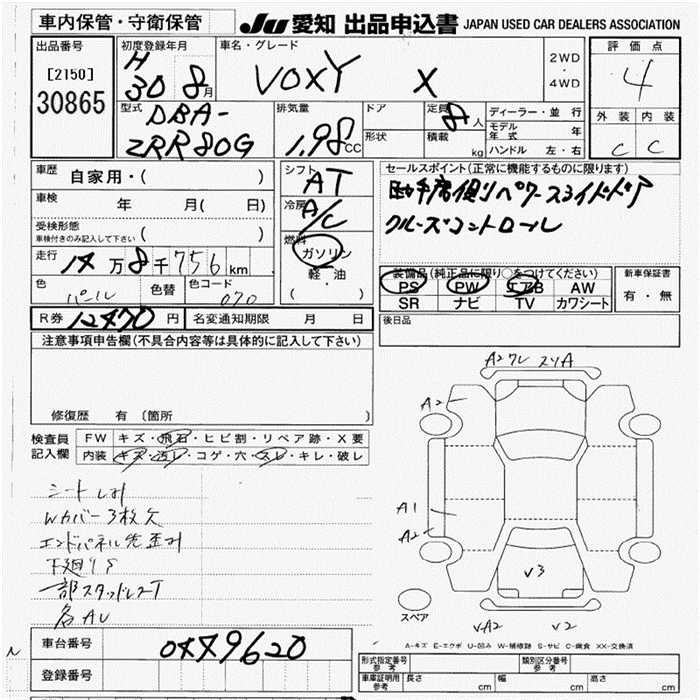 車内保管・守衛保管
JU 愛知 出品申込書 JAPAN USED CAR DEALERS ASSOCIATION
出品番号
[2150]
30865
初度登録年月
H 30 8月
車名・グレード
VOXY X
2WD
・
4WD
評価点
4
外装 内装
C C
型式
DBA-
ZRR80G
排気量
1.98 CC
ドア
形状
定員 8人
積載 kg
ディーラー・並行
モデル年式 年
ハンドル 左・右
車歴 自家用・( )
車検 年 月( 日)
受検形態
車検付きのみ記入して下さい ( )
走行 14万8千756km
色 パール 色替 色コード 070
シフト AT
冷房 A/C
燃料
ガソリン
軽・油
( ・ )
セールスポイント(正常に機能するものに限ります)
助手席側リパワースライドドア
クルーズコントロール
装備品(純正品に限り○をつけてください)
PS PW エアB AW
SR ナビ TV カワシート
新車保証書
有・無
R券 12470円 名変通知期限 月 日
後日品
注意事項申告欄(不具合内容等は具体的に記入して下さい)
修復歴 有(箇所 )
検査員
記入欄
FW キズ・飛石・ヒビ割・リペア跡・X要
内装 キズ・汚レ・コゲ・穴・スレ・キレ・破レ
シート
Wカバー3枚欠
エンドパネル先歪み
下廻りS
一部スタッドレスT
各AU
A2 ワレ スリA
A2
A1
A2
V3
スペア
VA2 V2
A-キズ E-エクボ U-凹み W-補修跡 S-サビ C-腐食 XX-交換済
車台番号 0449620
登録番号
形式指定番号
参考
類別区分番号
参考
車庫証明用
参考
長さ cm 幅 cm 高さ cm